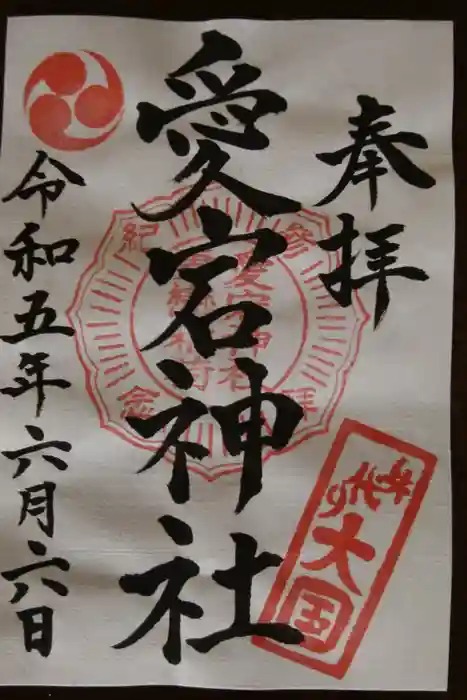 奉拝
愛宕神社
令和五年六月六日
参拝
紀念
愛宕神社
大国